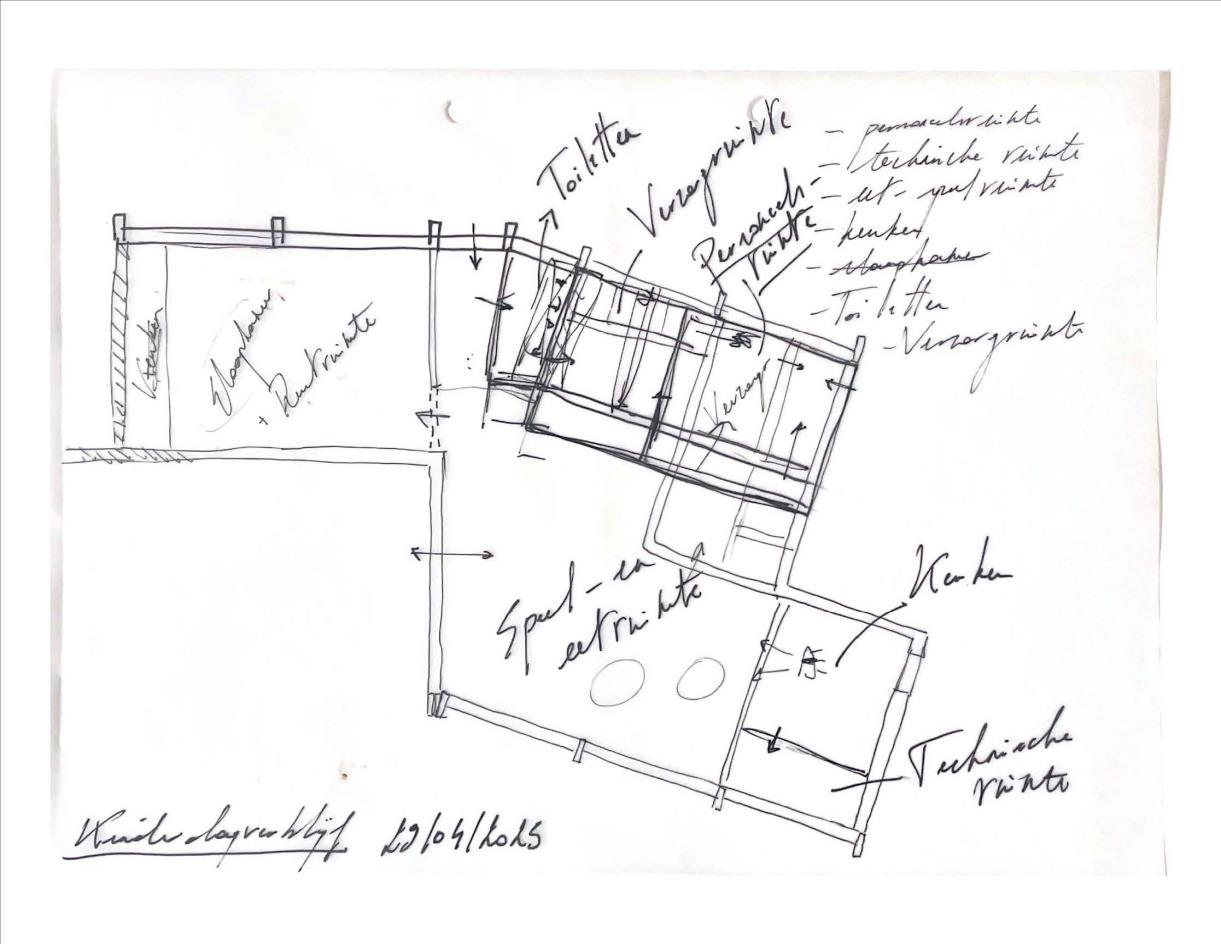 Toiletten
Verzorgruimte
Personeels
ruimte
- personeelsruimte
- technische ruimte
- eet - speelruimte
- keuken
- slaapkamer
- Toiletten
- Verzorgruimte
Slaapkamer
+ Rustruimte
Verzorgr
Speel - en
eetruimte
Keuken
Technische
ruimte
Kinderdagverblijf 29/04/2025